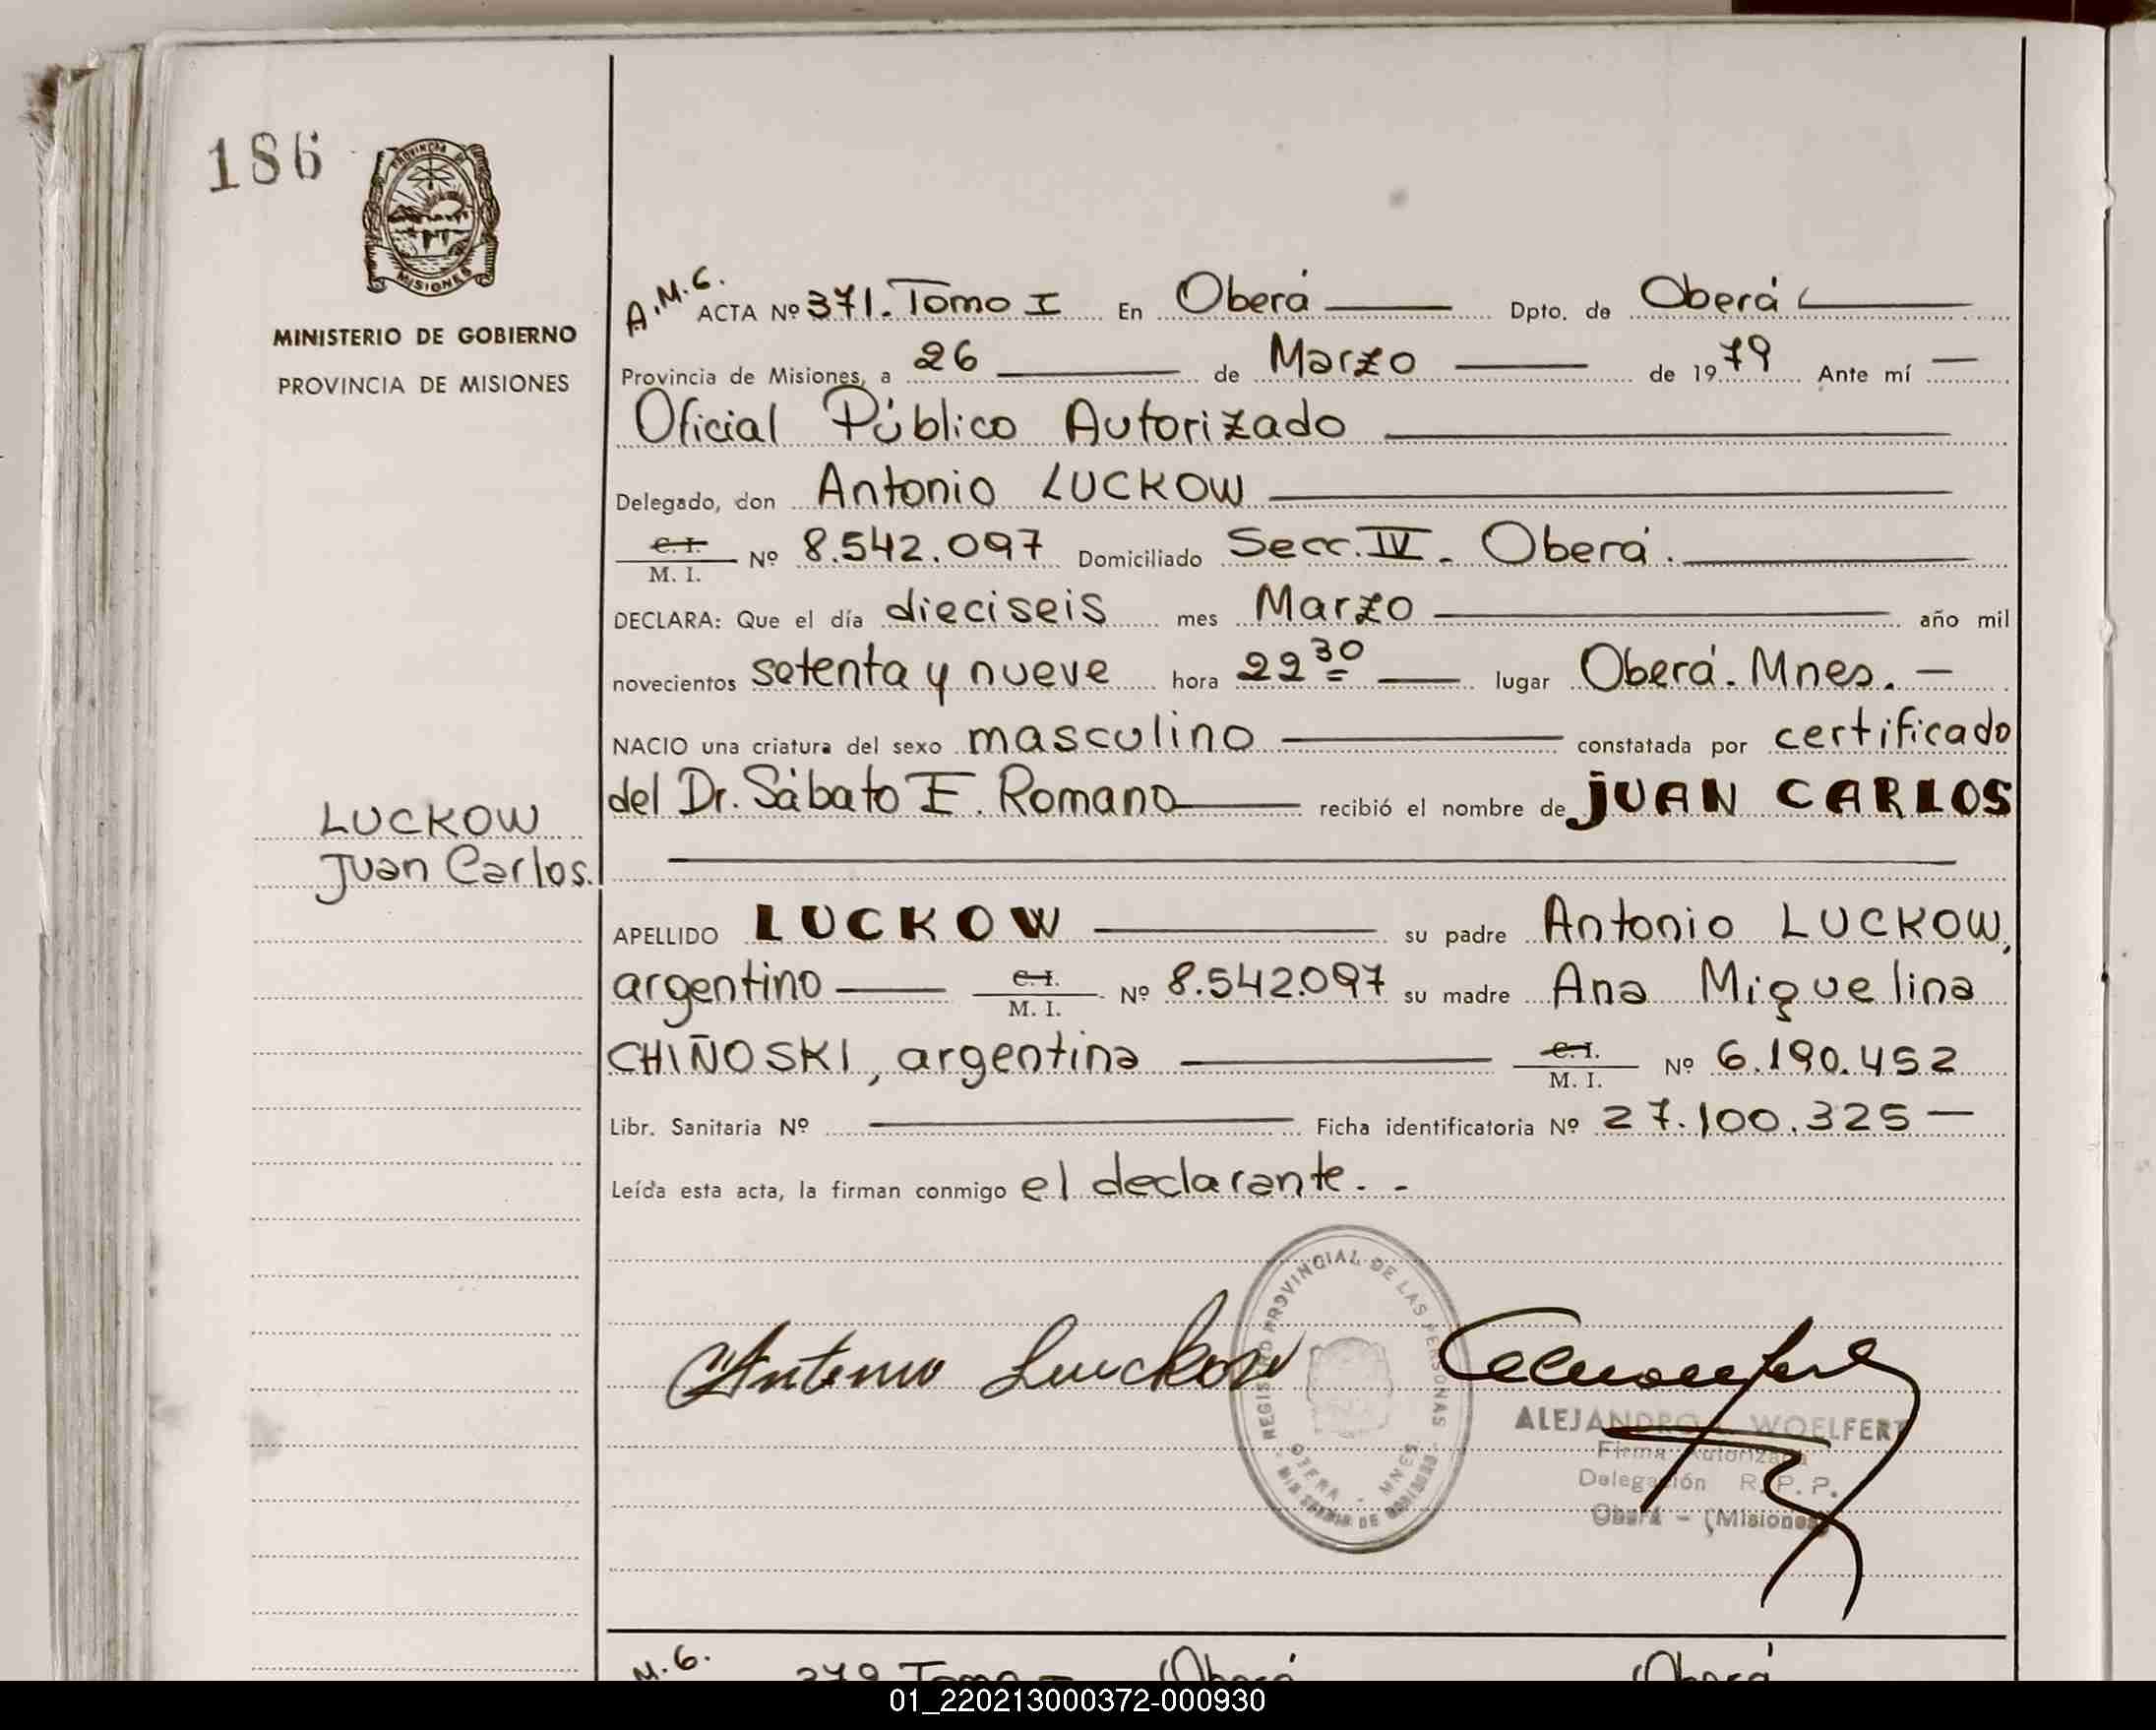 186
PROVINCIA DE
MISIONES
MINISTERIO DE GOBIERNO
PROVINCIA DE MISIONES
A.M.G. ACTA Nº 371. Tomo I En Oberá Dpto. de Oberá
Provincia de Misiones, a 26 de Marzo de 1979 Ante mí
Oficial Público Autorizado
Delegado, don Antonio LUCKOW
C. I.
M. I. Nº 8.542.097 Domiciliado Secc. IV. Oberá.
DECLARA: Que el día dieciseis mes Marzo año mil
novecientos setenta y nueve hora 22 30 lugar Oberá. Mnes. —
NACIO una criatura del sexo masculino constatada por certificado
del Dr. Sábato E. Romano recibió el nombre de JUAN CARLOS
LUCKOW
Juan Carlos.
APELLIDO LUCKOW su padre Antonio LUCKOW,
argentino C. I.
M. I. Nº 8.542.097 su madre Ana Miquelina
CHIÑOSKI, argentina C. I.
M. I. Nº 6.190.452
Libr. Sanitaria Nº Ficha identificatoria Nº 27.100.325 —
Leída esta acta, la firman conmigo el declarante. -
Antonio Luckow
REGISTRO PROVINCIAL DE LAS PERSONAS
OBERA - MNES
ALEJANDRO WOELFERT
Firma Autorizada
Delegación R. P. P.
Oberá - (Misiones)
01_220213000372-000930